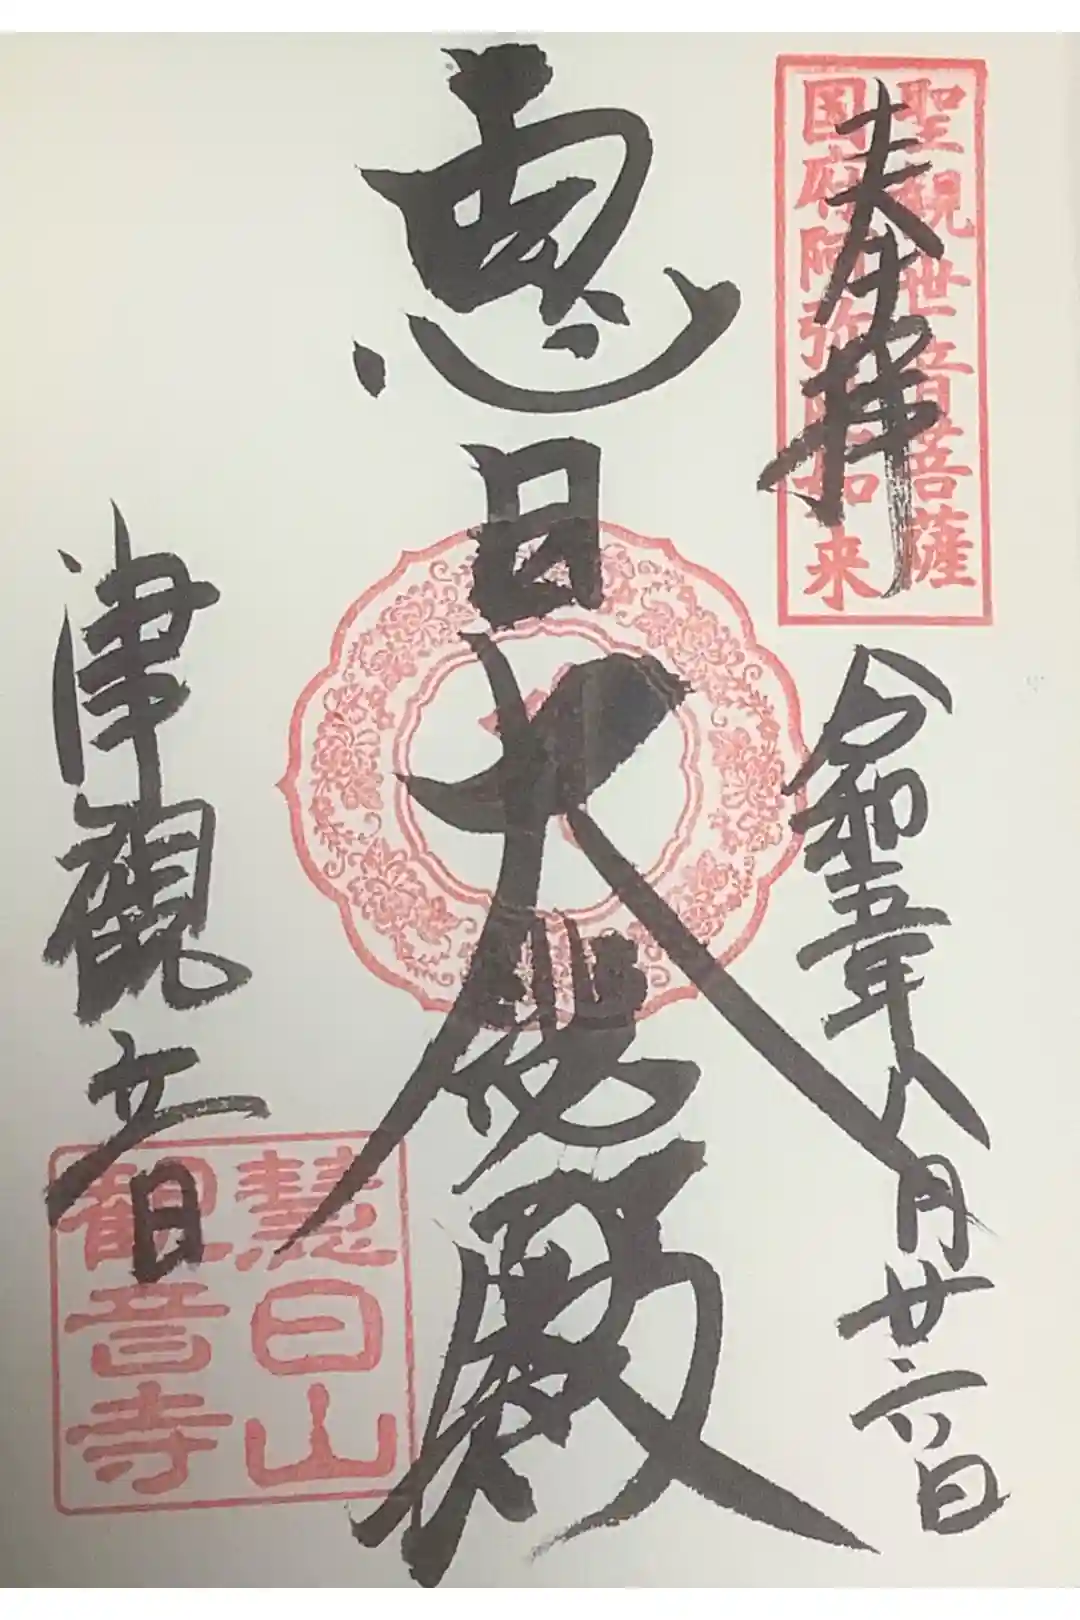 奉拝
聖観世音菩薩
国府阿弥陀如来
令和五年八月廿六日
恵日大悲殿
津観音
慧日山
観音寺